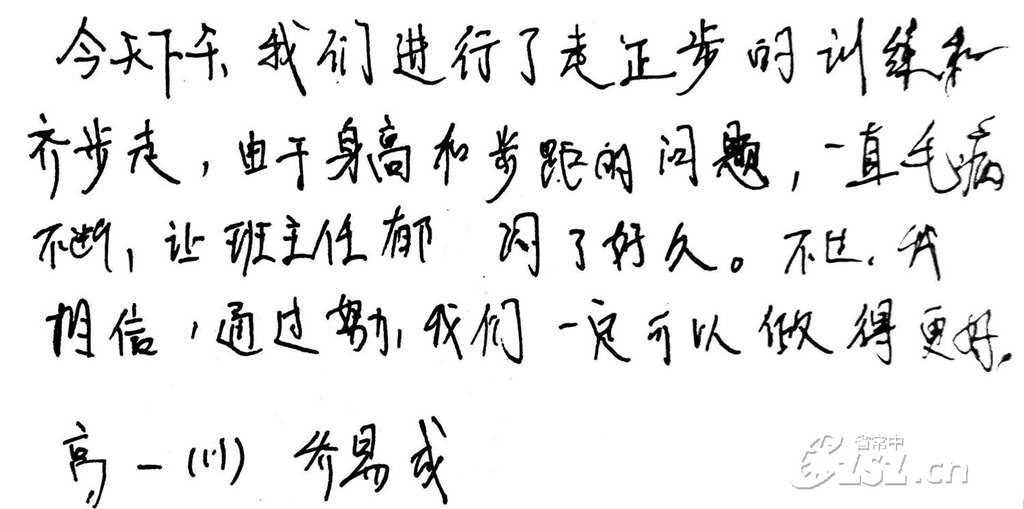 今天下午,我们进行了走正步的训练和
齐步走,由于身高和步距的问题,一直毛病
不断,让班主任郁闷了好久。不过,我
相信,通过努力,我们一定可以做得更好。
高一(11) 易成
省常中
CZSZ.cn